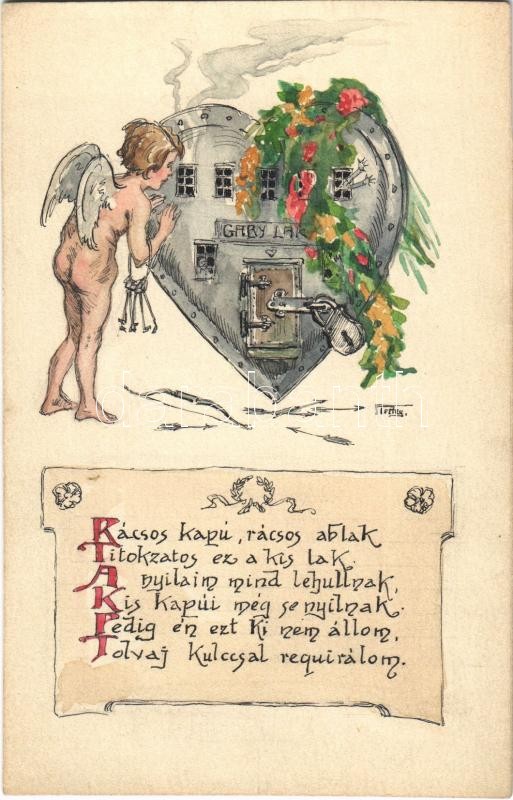 GABY LAK
Rácsos kapú, rácsos ablak
Titokzatos ez a kis lak
A nyilaim mind lehullnak,
Kis kapúi még se nyílnak.
Pedig én ezt ki nem állom,
Tolvaj kulccsal requirálom.